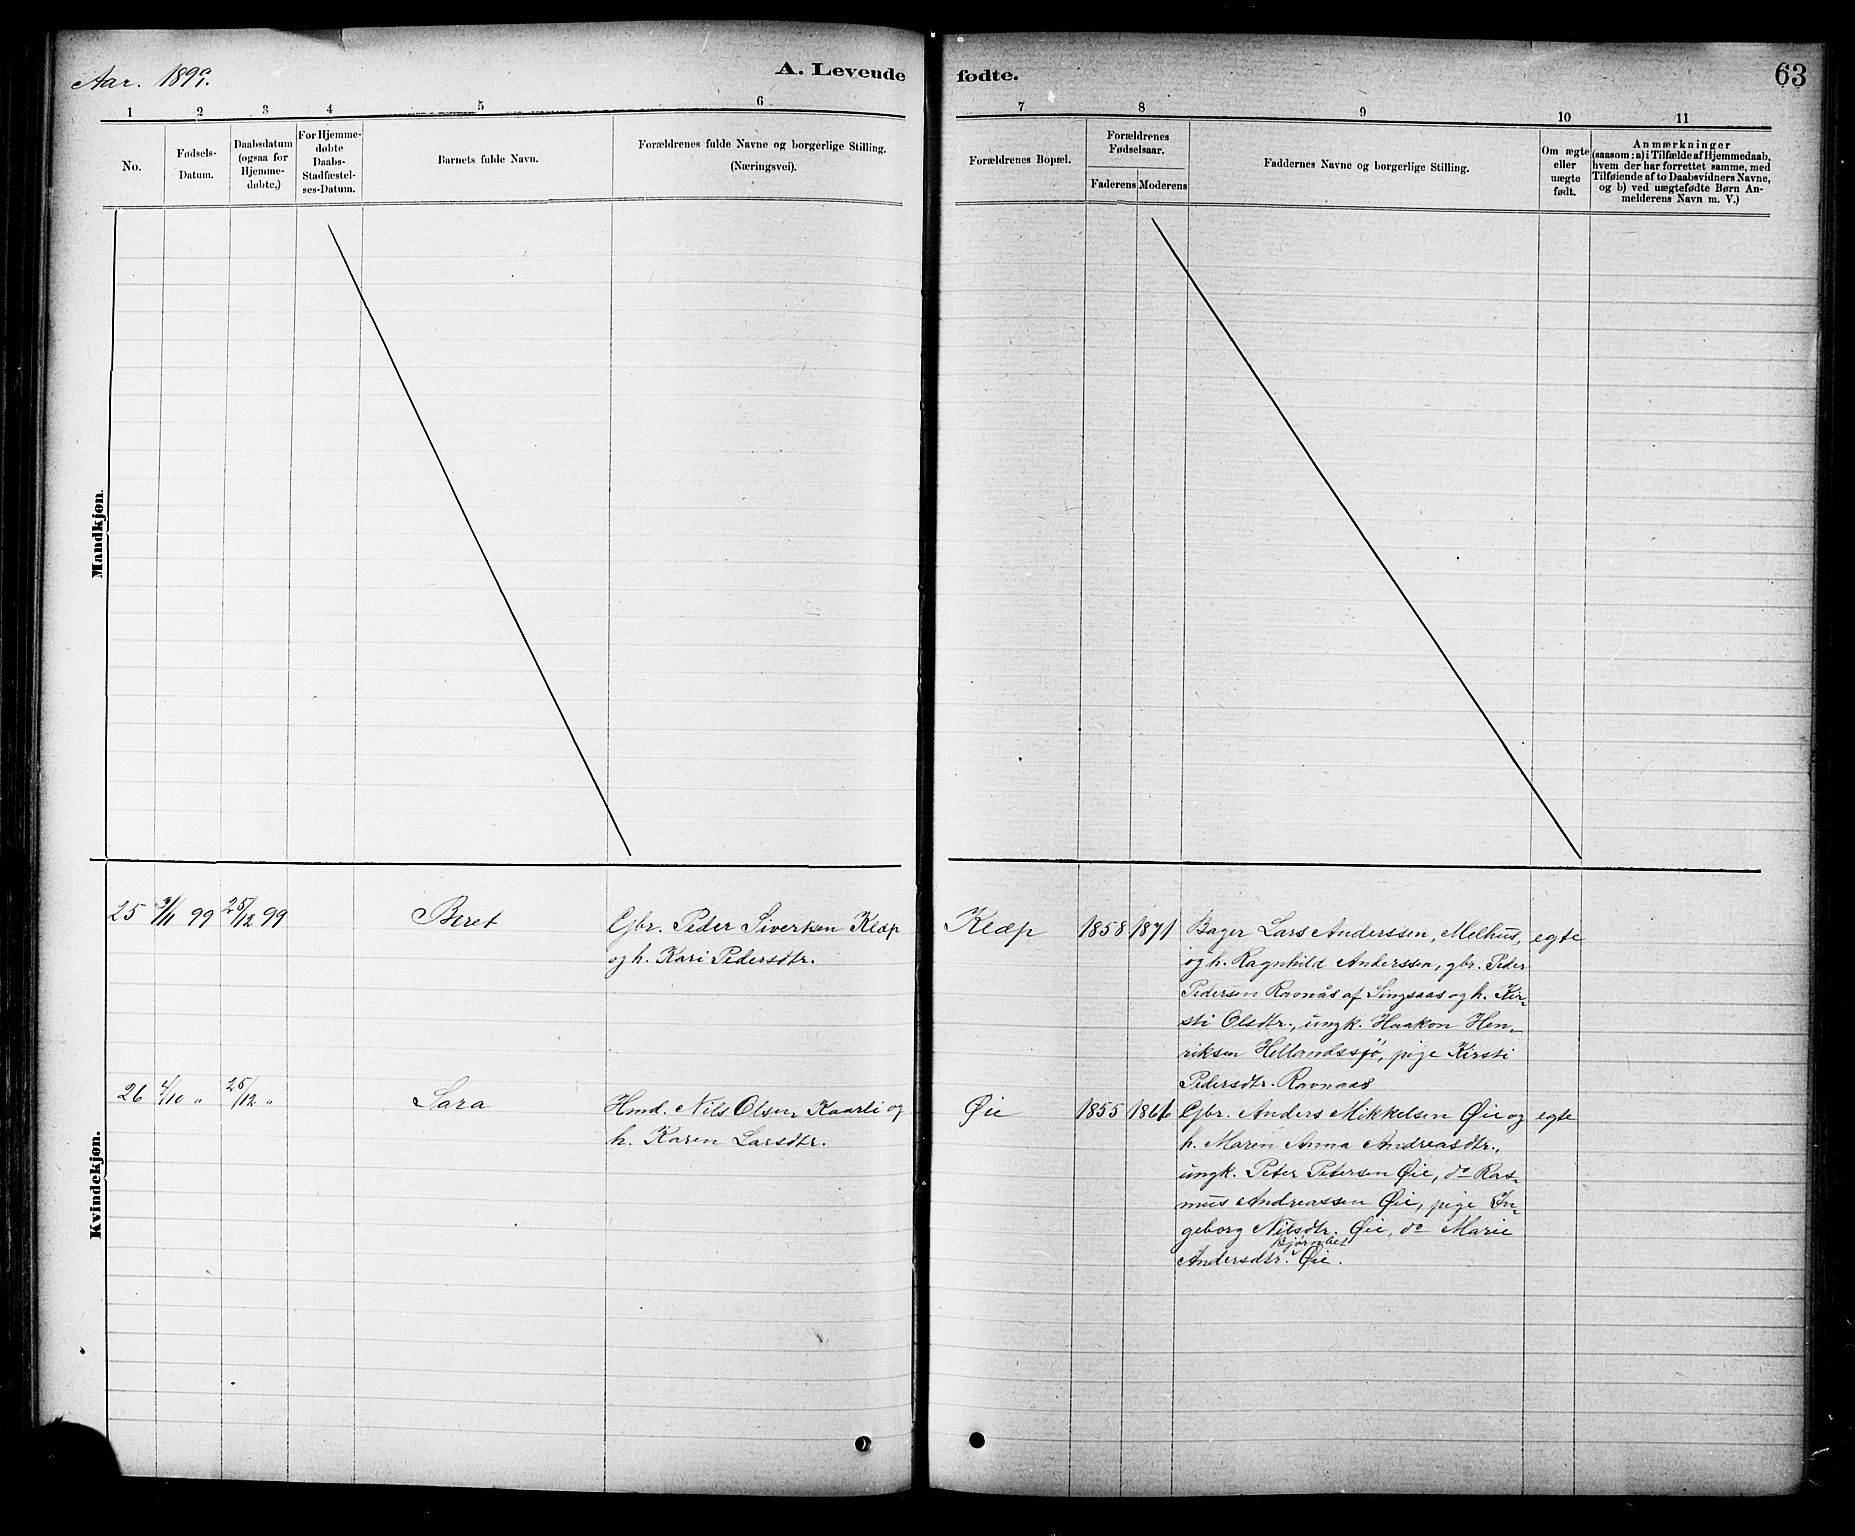 Aar. 1899.
A. Levende fødte.
63
1 2 3 4 5 6 7 8 9 10 11
No.
Fødsels-
Datum.
Daabsdatum
(ogsaa for
Hjemme-
døbte.)
For Hjemme-
døbte
Daabs-
Stadfæstel-
ses-Datum.
Barnets fulde Navn.
Forældrenes fulde Navne og borgerlige Stilling.
(Næringsvei).
Forældrenes Bopæl.
Forældrenes
Fødselsaar.
Faderens Moderens
Faddernes Navne og borgerlige Stilling.
Om ægte
eller
uægte
født.
Anmærkninger
(saasom: a) i Tilfælde af Hjemmedaab,
hvem der har forrettet samme, med
Tilføiende af to Daabsvidners Navne,
og b) ved uægtefødte Børn An-
melderens Navn m. V.)
Mandkjøn.
Kvindekjøn.
25 /11 99 25/12 99 Beret
Gbr. Peder Sivertsen Klæp
og h. Kari Pedersdtr.
Klæp 1858 1871
Bager Lars Anderssen, Melhus, egte
og h. Ragnhild Anderssen, gbr. Peder
Pedersen Ravnås af Singsaas og h. Kir-
sti Olsdtr., ungk. Haakon Hen-
riksen Hellandssjø, pige Kirsti
Pedersdtr. Ravnaas
26 4/10 " 25/12 " Sara
Hmd. Nils Olsen Kaarli og
h. Karen Larsdtr.
Øie 1855 1866
Gbr. Anders Mikkelsen Øie og egte
h. Maren Anna Andreasdtr.,
ungk. Peter Petersen Øie, do Ras-
mus Andreassen Øie, pige In-
geborg Nilsdtr. Øie, do Marie
Andersdtr. Øie.